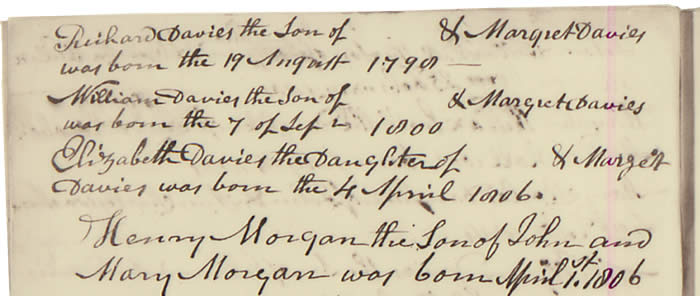 Richard Davies the Son of & Margret Davies
was born the 19 August 1798 —
William Davies the Son of & Margret Davies
was born the 7 of Sepr 1800
Elizabeth Davies the Daughter of & Marget
Davies was born the 4 April 1806.
Henry Morgan the Son of John and
Mary Morgan was born April 1st. 1806